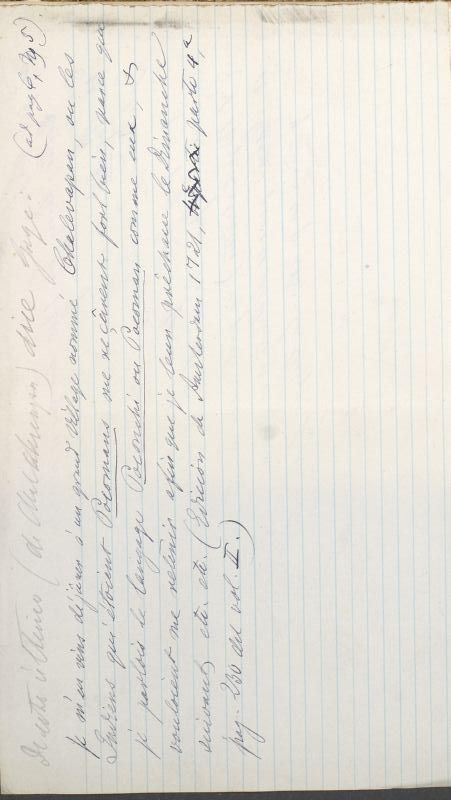 (de Chalchuapa) dice Gage:
(ad pag 6, N. 5)
je m'en vins déjûner à un grand Village nommé Chalevapan, ou les
Indiens qui étoient Pocomans me reçûrent fort bien, parce que
je parlois le langage Poconchi ou Pocoman comme eux, &
vouloient me retenir afin que je leur prêchasse le Dimanche
suivant, etc. etc. (Edicion de Amsterdam 1721, parte 4ª,
pag. 230 del vol. II.)